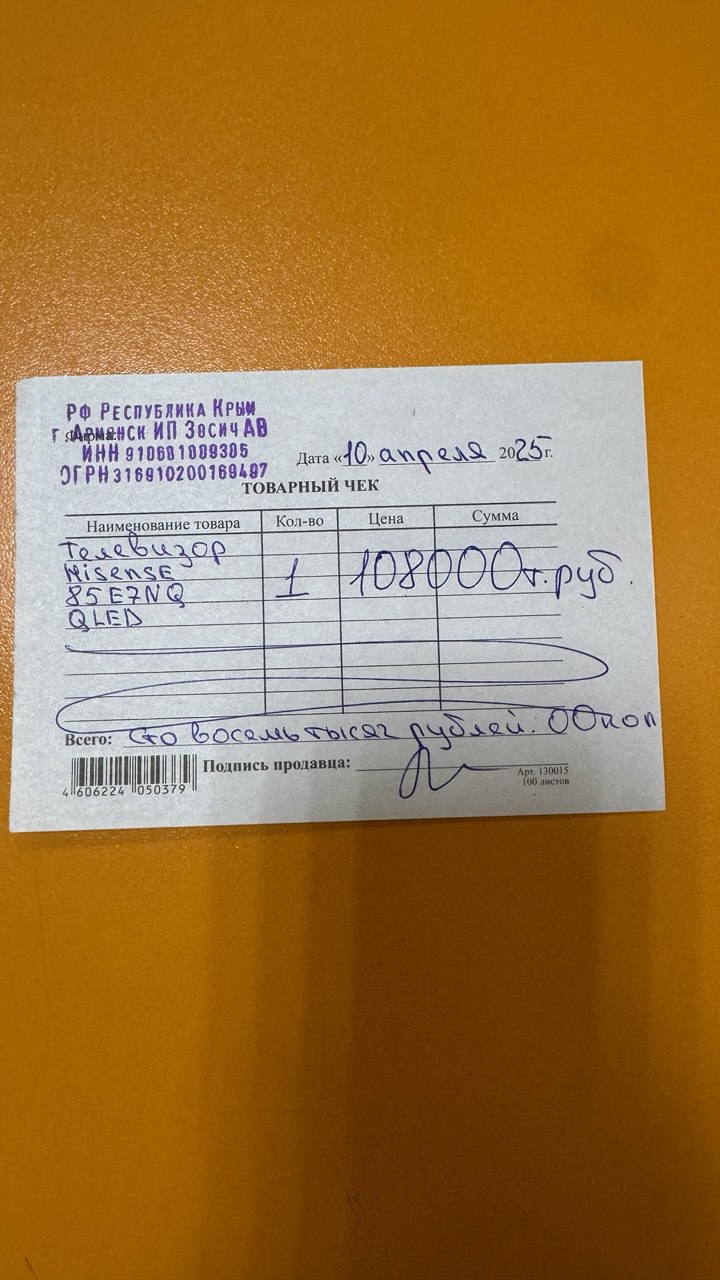 РФ РЕСПУБЛИКА КРЫМ
г АРМЯНСК ИП Зосич АВ
ИНН 910601009305
ОГРН 316910200169497
Дата «10» апреля 2025г.
ТОВАРНЫЙ ЧЕК
Наименование товара Кол-во Цена Сумма
Телевизор
HisensE
85E7NQ
QLED
1 108000т.руб.
Всего: Сто восемь тысяч рублей. 00коп
Подпись продавца:
4 606224 050379
Арт. 130015
100 листов